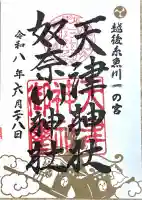 越後糸魚川一の宮
天津神社
奴奈川神社
令和八年六月二八日